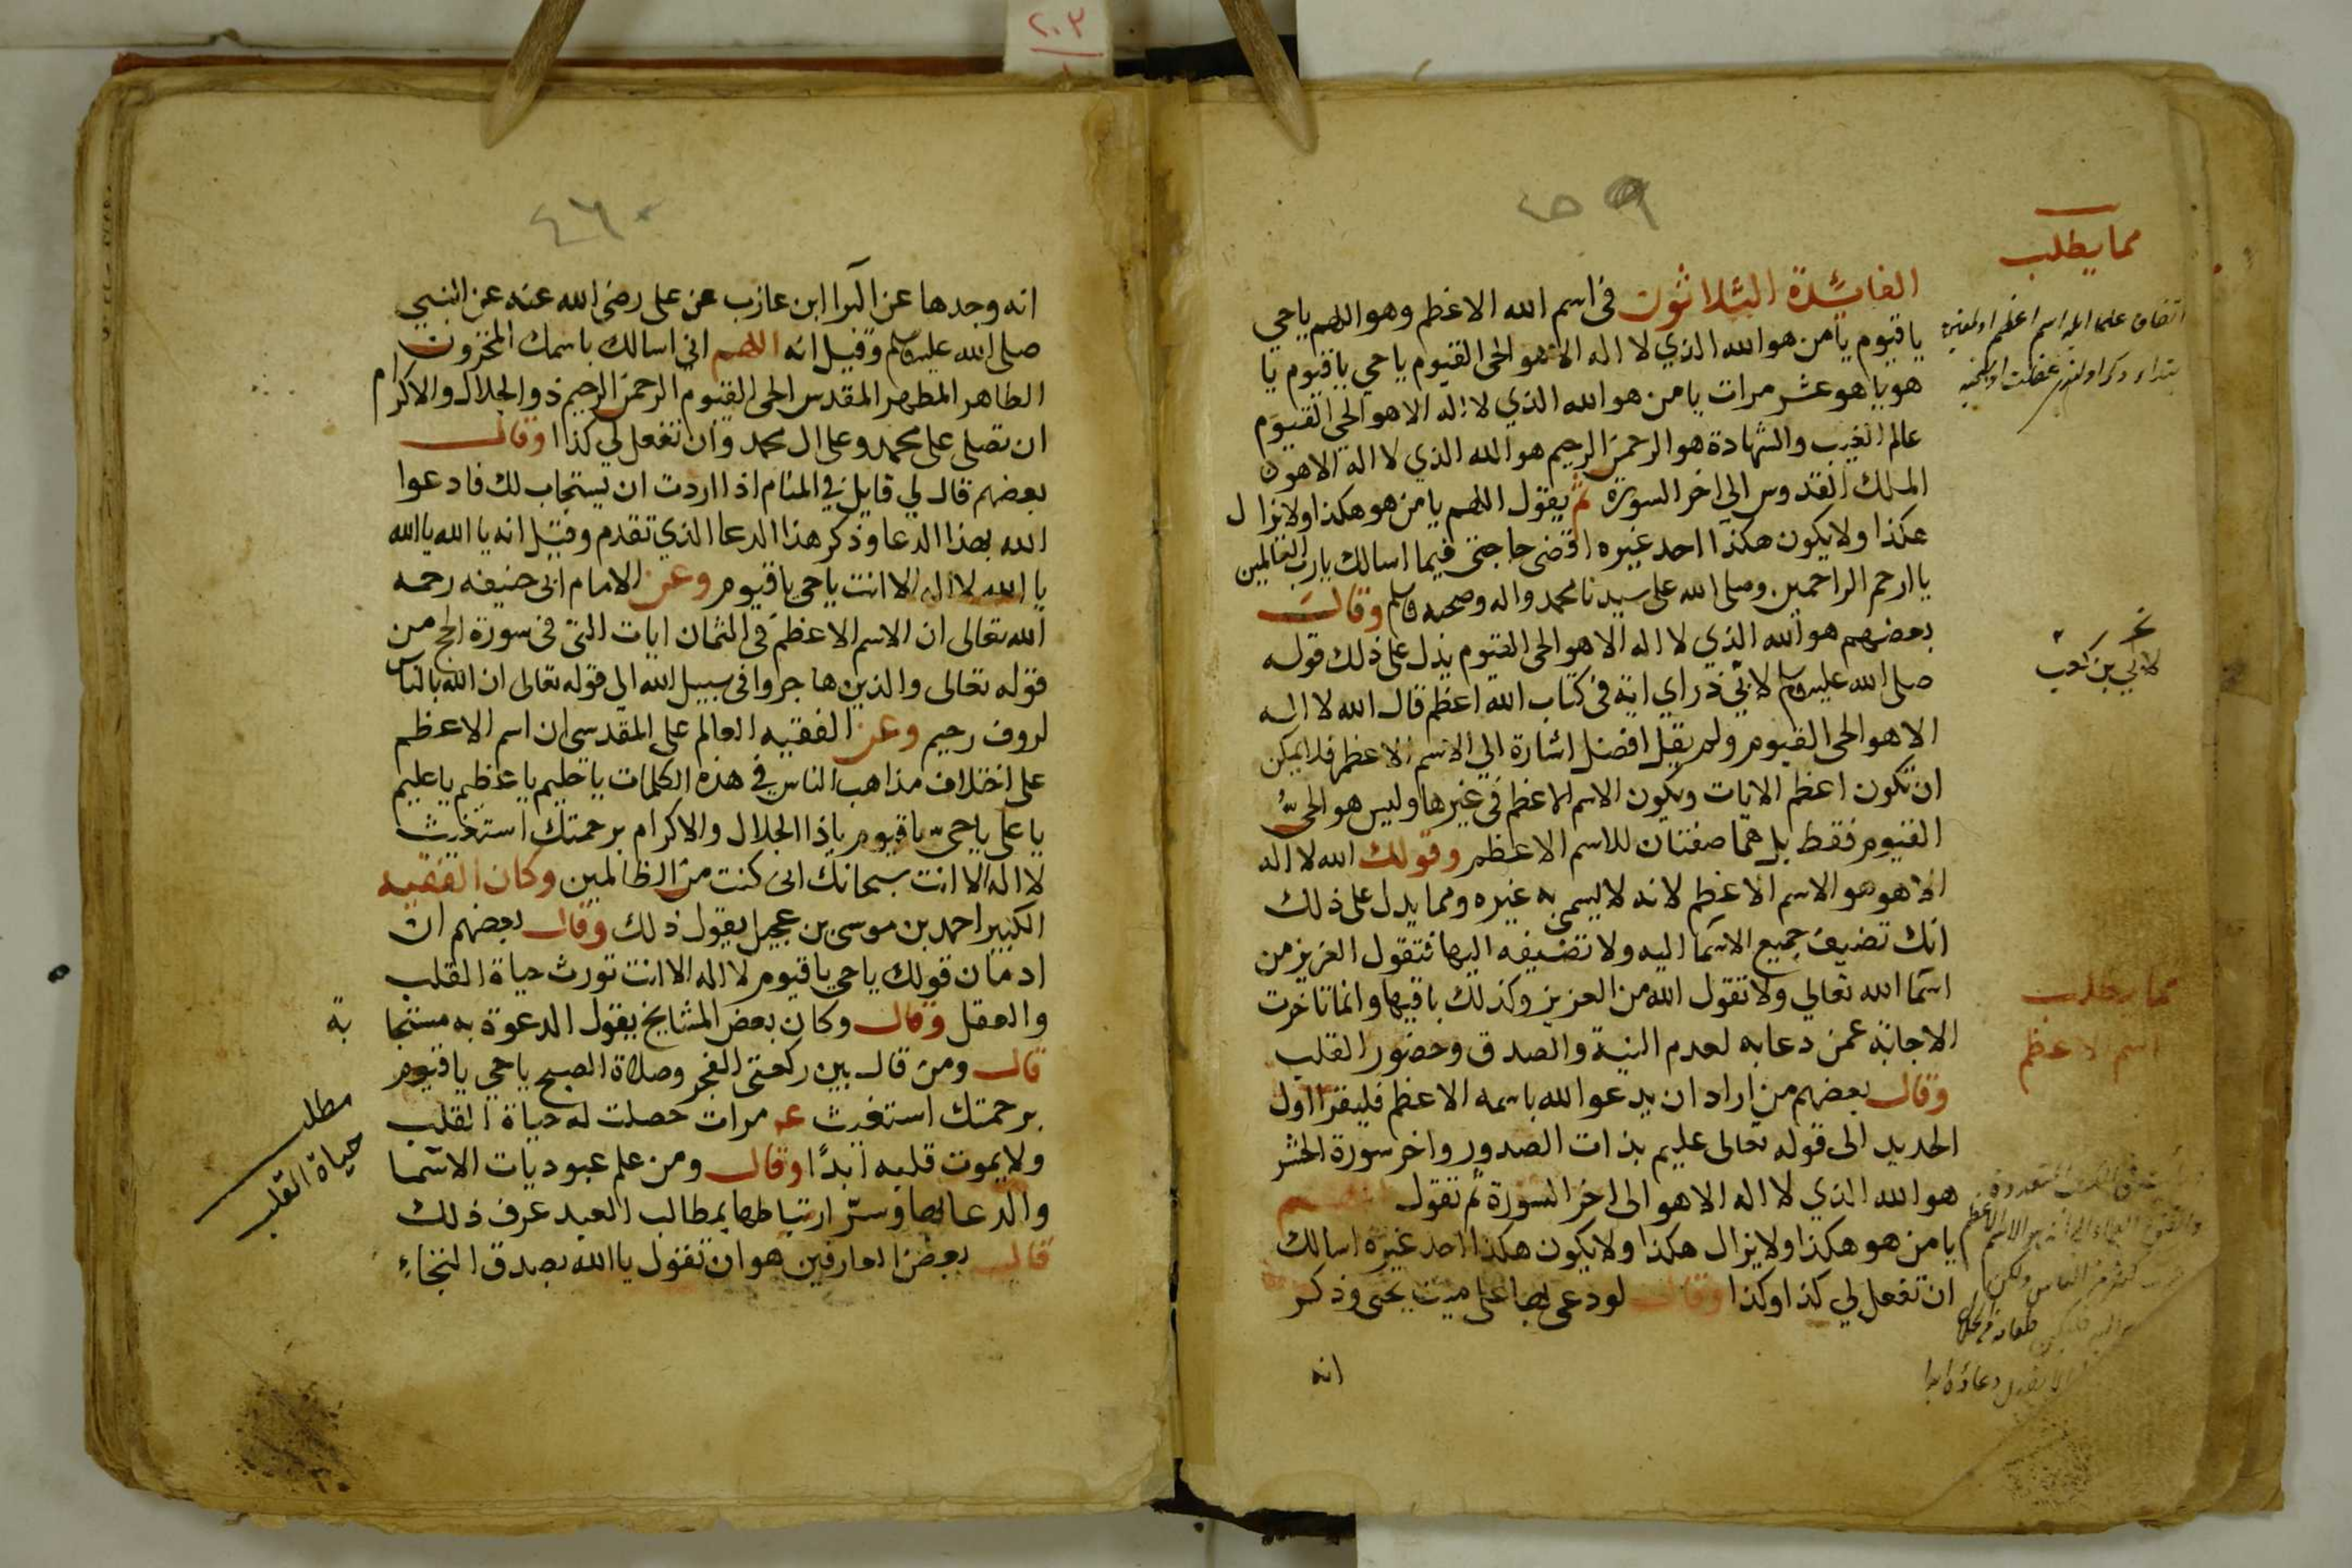 ٢٠٣
٤٥٩
مما يطلب
الفائدة الثلاثون في اسم الله الاعظم وهو اللهم ياحي
ياقيوم يامن هو الله الذي لا اله الا هو الحي القيوم ياحي ياقيوم يا
هو يا هو عشر مرات يا من هو الله الذي لا اله الا هو الحي القيوم
عالم الغيب والشهادة هو الرحمن الرحيم هو الله الذي لا اله الا هو
الملك القدوس الى اخر السورة ثم يقول اللهم يا من هو هكذا ولا يزال
هكذا ولا يكون هكذا احد غيره اقضى حاجتى فيما اسالك يا رب العالمين
يا ارحم الراحمين وصلى الله على سيدنا محمد واله وصحبه وسلم وقالت
بعضهم هو الله الذي لا اله الا هو الحى القيوم يدل على ذلك قوله
صلى الله عليه وسلم لابي ذر اي اية في كتاب الله اعظم قال الله لا اله
لابي بن كعب
الا هو الحى القيوم ولم يقل افضل اشارة الي الاسم الاعظم فلا يمكن
ان تكون اعظم الايات ويكون الاسم الاعظم في غيرها وليس هو الحيُّ
القيوم فقط بل هما صفتان للاسم الاعظم وقولك الله لا اله
الا هو هو الاسم الاعظم لانه لا يسمى به غيره ومما يدل على ذلك
انك تضيف جميع الاسما اليه ولا تضيفه اليها فتقول العزيز من
اسما الله تعالي ولا تقول الله من العزيز وكذلك باقيها وانما تاخرت
مما يطلب
اسم الاعظم
الاجابة عمن دعا به لعدم النية والصدق وحضور القلب
وقال بعضهم من اراد ان يدعو الله باسمه الاعظم فليقرا اول
الحديد الى قوله تعالى عليم بذات الصدور واخر سورة الحشر
هو الله الذي لا اله الا هو الى اخر السورة ثم تقول اللهم
يا من هو هكذا ولا يزال هكذا ولا يكون هكذا احد غيره اسالك
ان تفعل لي كذا وكذا وقال لو دعى بها على ميت يحيى وذكر
انه
٤٦٠
انه وجدها عن البرا ابن عازب عن على رضى الله عنه عن النبي
صلى الله عليه وسلم وقيل انه اللهم انى اسالك باسمك المخزون
الطاهر المطهر المقدس الحى القيوم الرحمن الرحيم ذو الجلال والاكرام
ان تصلى على محمد وعلى ال محمد وان تفعل لي كذا وقال
بعضهم قال لي قايل في المنام اذا اردت ان يستجاب لك فادعوا
الله بهذا الدعا وذكر هذا الدعا الذي تقدم وقيل انه يا الله يا الله
يا الله لا اله الا انت ياحي ياقيوم وعن الامام ابى حنيفه رحمه
الله تعالى ان الاسم الاعظم في الثمان ايات التى فى سورة الحج من
قوله تعالى والذين هاجروا فى سبيل الله الي قوله تعالى ان الله بالناس
لروف رحيم وعن الفقيه العالم على المقدسى ان اسم الاعظم
على اختلاف مذاهب الناس في هذه الكلمات يا حليم يا عظيم يا عليم
يا على يا حيّ يا قيوم يا ذا الجلال والاكرام برحمتك استغيث
لا اله الا انت سبحانك انى كنت من الظالمين وكان الفقيه
الكبير احمد بن موسى بن عجيل يقول ذلك وقال بعضهم ان
ادمان قولك يا حي يا قيوم لا اله الا انت تورث حياة القلب
والعقل وقال وكان بعض المشايخ يقول الدعوة به مستجا
بة
قال ومن قال بين ركعتى الفجر وصلاة الصبح يا حي يا قيوم
برحمتك استغيث عـ مرات حصلت له حياة القلب
مطلب
حياة القلب
ولا يموت قلبه ابدًا وقال ومن علم عبوديات الاسما
والدعا بها وسرّ ارتباطها بمطالب العبد عرف ذلك
قال بعض العارفين هو ان تقول يا الله بصدق التجاءِ